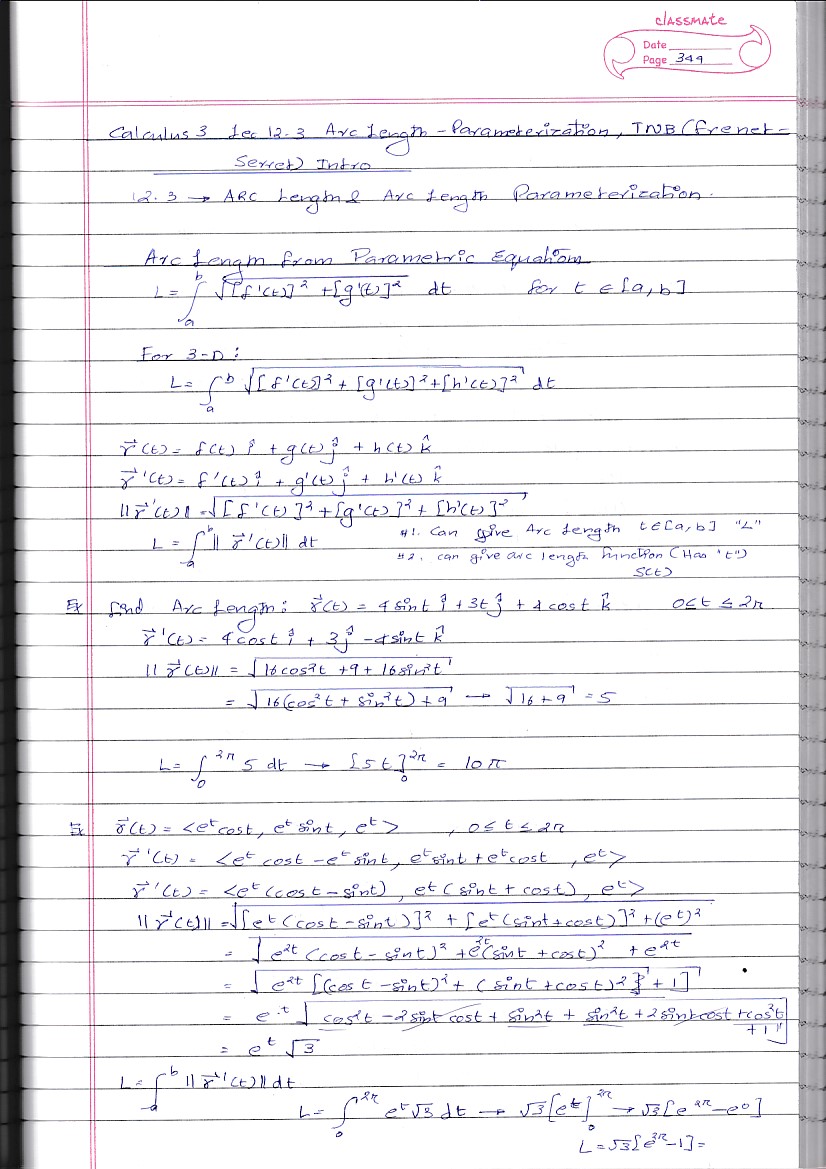 classmate
Date
Page 349
Calculus 3 Lec 12.3 Arc Length - Parameterization, TNB (Frenet-
Serret) Intro
12.3 → ARC Length & Arc Length Parameterization.
Arc Length from Parametric Equation
L = ∫_a^b √([f'(t)]² + [g'(t)]²) dt for t ∈ [a, b]
For 3-D:
L = ∫_a^b √([f'(t)]² + [g'(t)]² + [h'(t)]²) dt
r⃗(t) = f(t) î + g(t) ĵ + h(t) k̂
r⃗'(t) = f'(t) î + g'(t) ĵ + h'(t) k̂
||r⃗'(t)|| = √([f'(t)]² + [g'(t)]² + [h'(t)]²)
L = ∫_a^b ||r⃗'(t)|| dt
#1. Can give Arc Length t ∈ [a, b] "L"
#2. can give arc length function (Has "t")
S(t)
Ex find Arc Length: r⃗(t) = 4 sint î + 3t ĵ + 4 cost k̂ 0 ≤ t ≤ 2π
r⃗'(t) = 4 cost î + 3 ĵ - 4 sint k̂
||r⃗'(t)|| = √(16 cos²t + 9 + 16 sin²t)
= √(16(cos²t + sin²t) + 9) → √(16 + 9) = 5
L = ∫_0^2π 5 dt → [5t]_0^2π = 10π
Ex r⃗(t) = <e^t cost, e^t sint, e^t> , 0 ≤ t ≤ 2π
r⃗'(t) = <e^t cost - e^t sint, e^t sint + e^t cost, e^t>
r⃗'(t) = <e^t (cost - sint), e^t (sint + cost), e^t>
||r⃗'(t)|| = √([e^t (cost - sint)]² + [e^t (sint + cost)]² + (e^t)²)
= √(e^2t (cost - sint)² + e^2t (sint + cost)² + e^2t)
= √(e^2t [(cost - sint)² + (sint + cost)²} + 1])
= e^t √(cos²t - 2 sint cost + sin²t + sin²t + 2 sint cost + cos²t + 1)
= e^t √3
L = ∫_a^b ||r⃗'(t)|| dt
L = ∫_0^2π e^t √3 dt → √3 [e^t]_0^2π → √3 [e^2π - e^0]
L = √3 [e^2π - 1] =